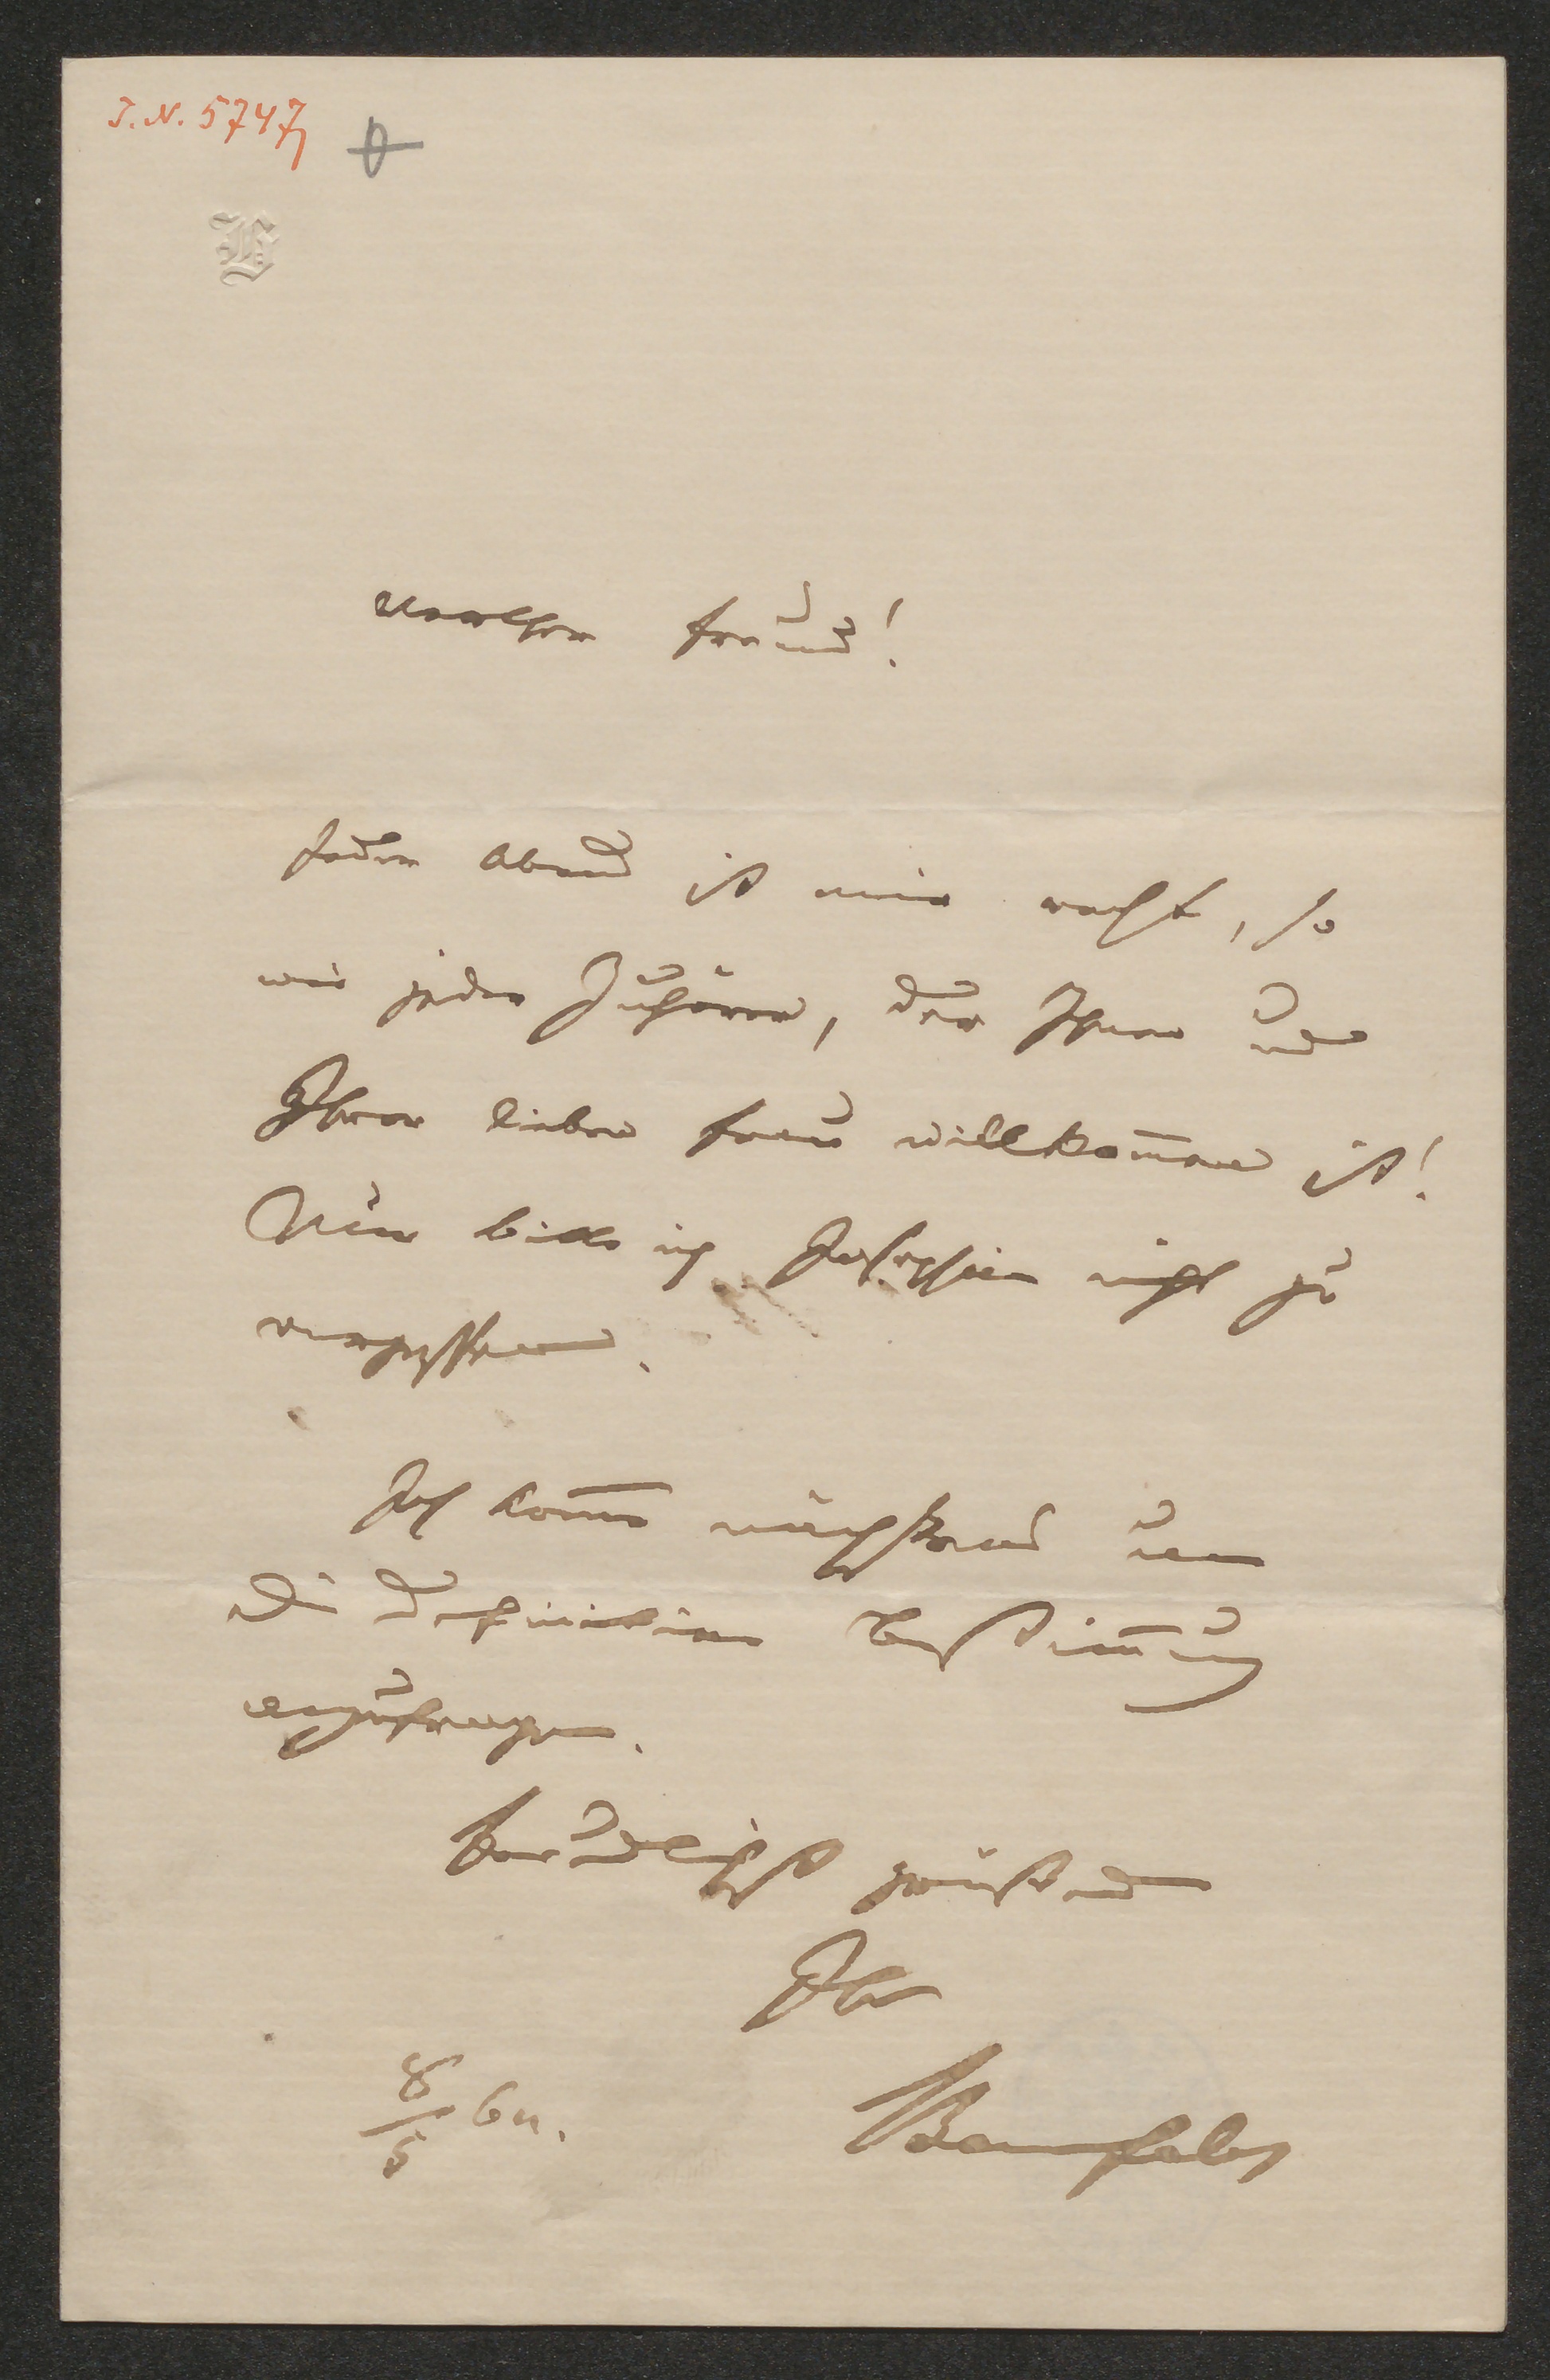 I.N. 5747
B
Verehrter Freund!
Jeder Abend ist mir recht, so
wie jeder Zuhörer, der Ihnen und
Ihrer lieben Frau willkommen ist!
Nur bitte ich Josephine nicht zu
vergessen.
Ich komme nächstens um
die definitive Bestimmung
anzufragen.
Freundlichst grüßend
Ihr
8/5 64.
Bauernfeld